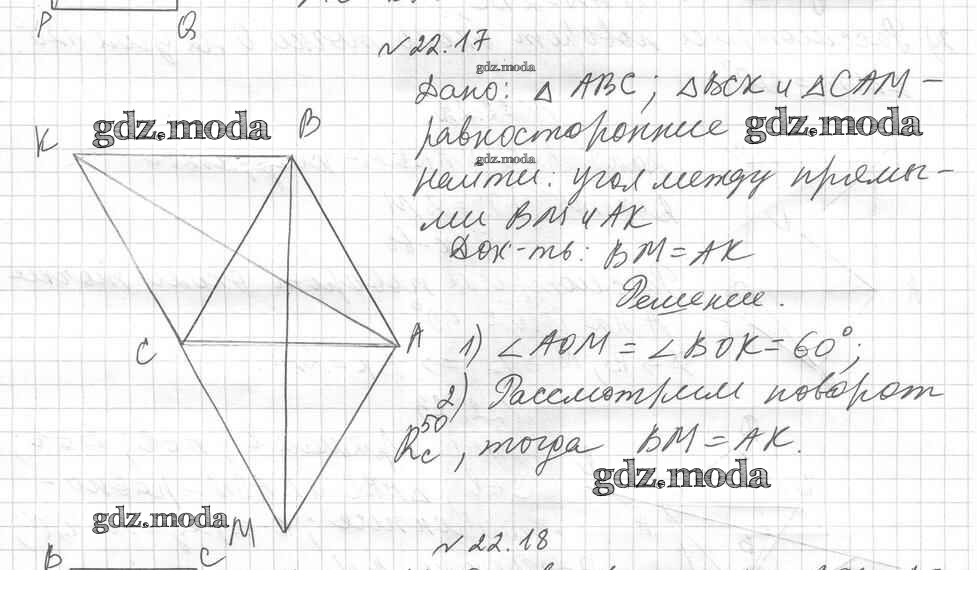 P Q
N 22.17
gdz.moda
Дано: △ ABC; △BCK и △CAM –
gdz.moda
K
B
равносторонние
gdz.moda
gdz.moda
найти: угол между прямы-
ми BM и AK
Док-ть: BM = AK
Решение.
C
A
1) ∠AOM = ∠BOK = 60°;
2) Рассмотрим поворот
R_C^50, тогда BM = AK.
gdz.moda
gdz.moda
M
N 22.18
B C